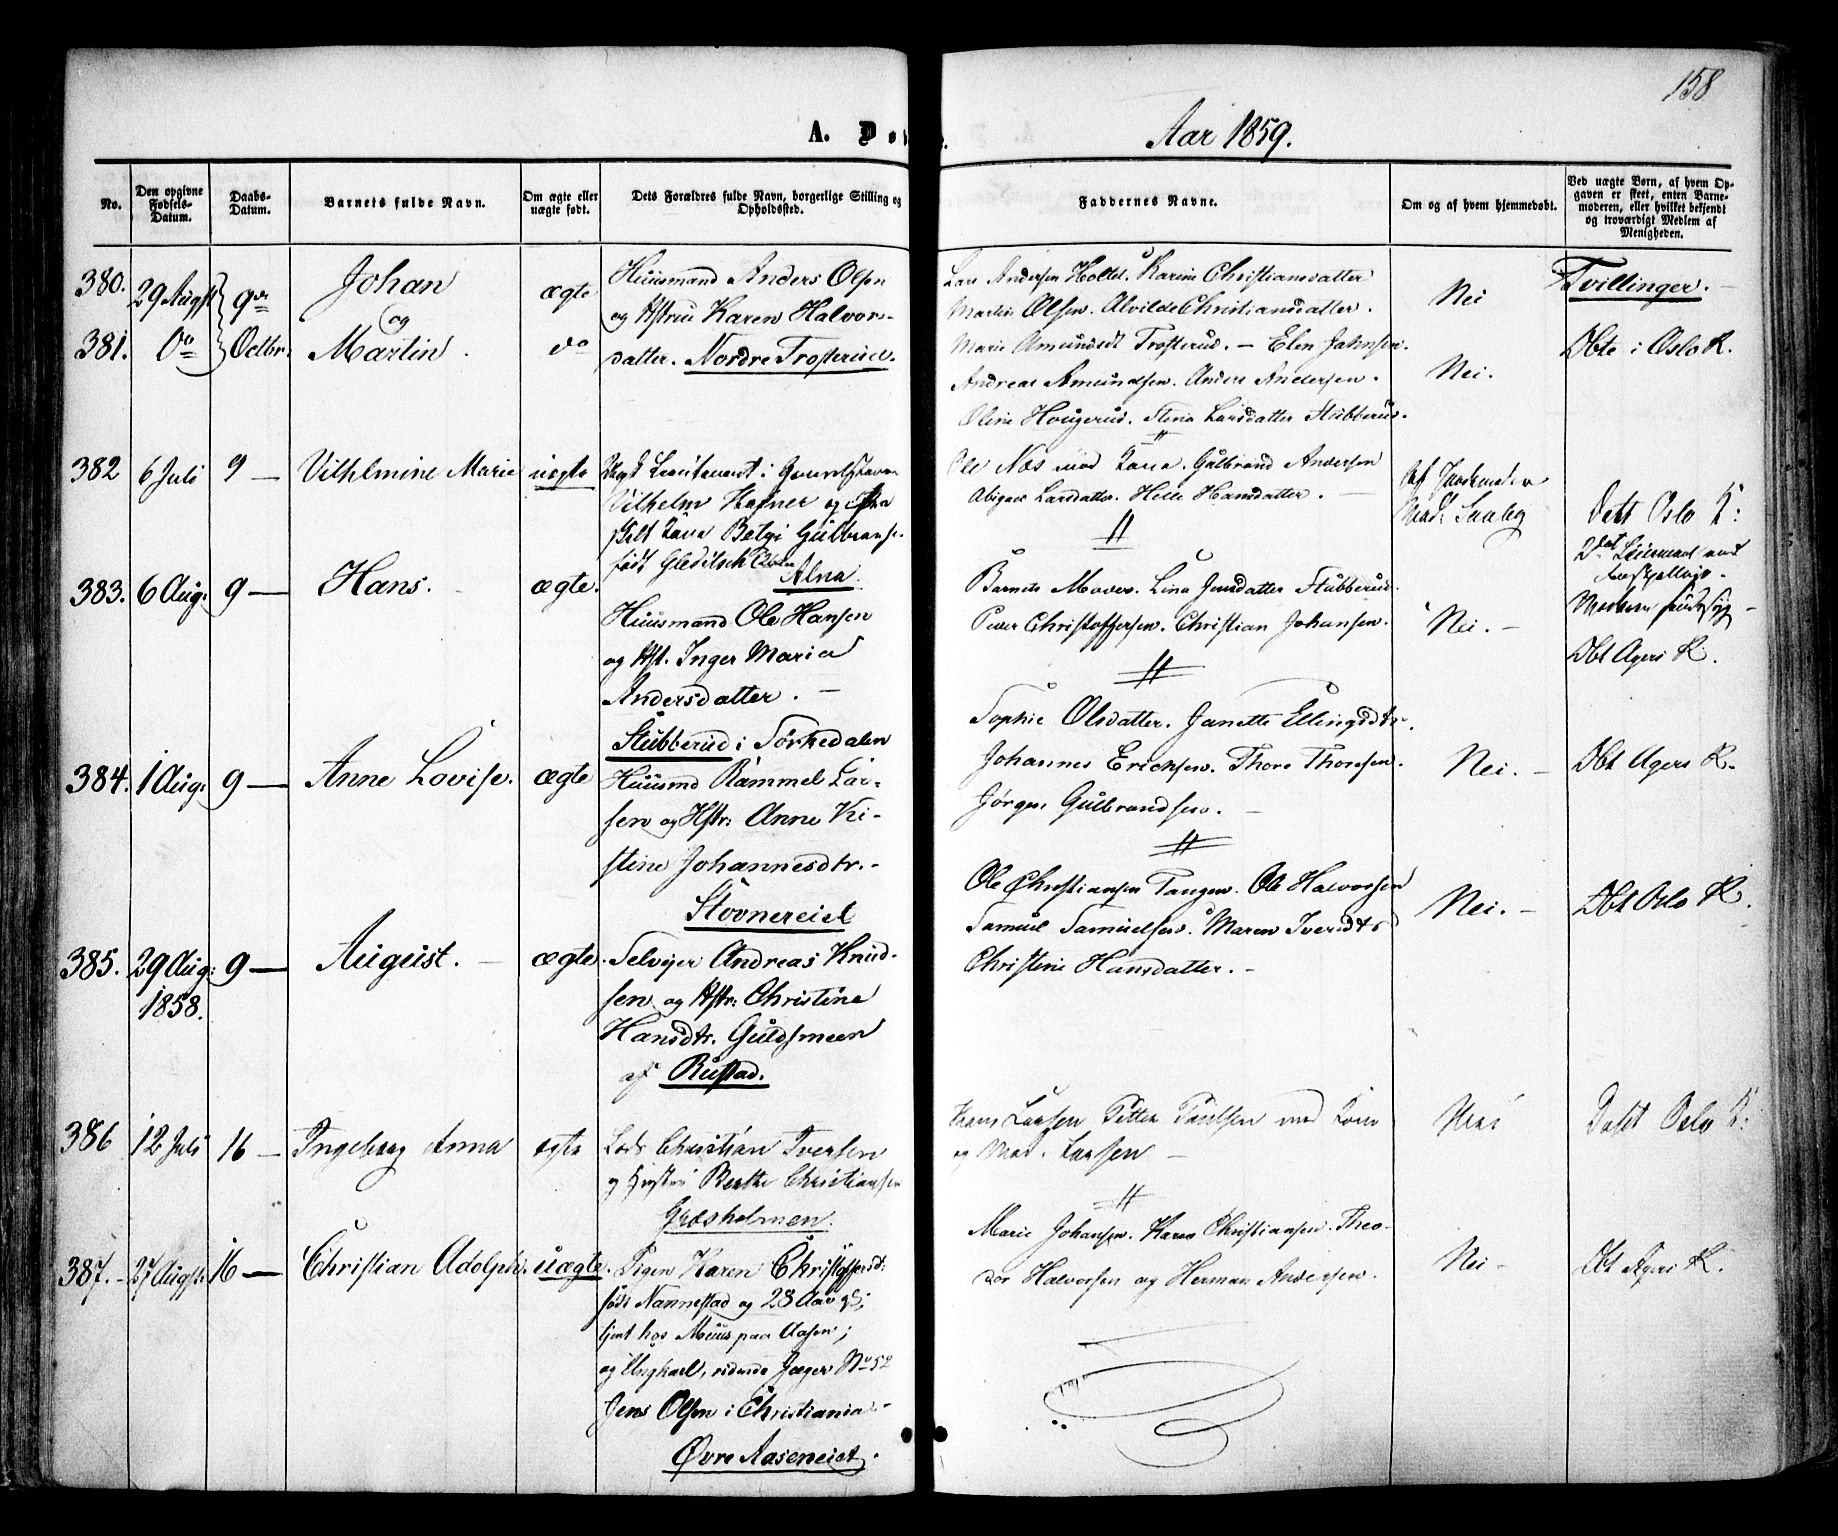 158
A. Dø
e.
Aar 1859.
No.
Den opgivne Fødsels-Datum.
Daabs-Datum.
Barnets fulde Navn.
Om ægte eller uægte født.
Dets Forældres fulde Navn, borgerlige Stilling og Opholdssted.
Faddernes Navne.
Om og af hvem hjemmedøbt.
Ved uægte Børn, af hvem Opgaven er skeet, enten Barnemoderen, eller hvilket bekjendt og troværdigt Medlem af Menigheden.
380. 29 Augst 9de Johan ægte Huusmand Anders Olsen
og
381. Do Octbr: Martin. do og Hstru Karen Halvors-
datter. Nordre Trosterud.
Lars Andersen Holtet. Karine Christiansdatter
Martin Olsen. Alvilde Christiansdatter.
Marie Amundsdt Trosterud. – Elen Jahnsen.
Andreas Amundsen. Anders Andersen.
Oline Hougerud. Stina Larsdatter Stubberud.
Nei
Nei.
Tvillinger. –
Dbte i Oslo K.
382 6 Juli 9 — Vilhelmine Marie uægte Lieutenant i
Vilhelm Hafner og
Belgi Gulbrans.
født Gleditsch
Alna.
Ole Næs med Gulbrand Andersen
Abigael Larsdatter. Helle Hansdatter. –
Af Jordemoder
Mad: Saaby
Døbt Oslo K:
383. 6 Aug: 9 — Hans. ægte. Huusmand Ole Hansen
og Hst. Inger Maria
Andersdatter. –
Stubberud i Sørkedalen
Barnets Moder. Lina Jensdatter Stubberud.
Peder Christoffersen. Christian Johansen.
Nei. –
Dbt Agers K.
384. 1 Aug: 9 — Anne Lovise. ægte Huusmd Rammel Lar-
sen og Hstr: Anne Ki-
stine Johannesdtr. –
Stovnereiet
Sophie Olsdatter. Janette Ellingsdtr.
Johannes Ericksen. Thore Thoresen.
Jørgen Gulbrandsen. –
Nei. –
Dbt Agers K.
385. 29 Aug: 9 — August. – ægte. Selveier Andreas Knud-
1858.
sen og Hstr: Christine
Hansdtr. Guldsmeen
af Rustad.
Ole Christiansen Tangen. Ole Halvorsen
Samuel Samuelsen. Maren Iversdtr
Christine Hansdatter. –
Nei. –
Dbt Oslo K.
386 12 Juli 16 — Ingeborg Anna ægte Lods Christian Iversen
og Hustru Berthe Christiansen
Græsholmen.
Hans Larsen Petter Paulsen med Kone
og Mad. Larsen –
Nei
Døbt Oslo K:
387. – 27 Augst: 16 — Christian Adolph. uægte. Pigen Karen Christoffersdt:
født Nannestad og 28 Aar gl;
tjent hos Muus paa Aasen;
og Ungkarl, ridende Jæger No 52
Jens Olsen i Christiania –
Øvre Aaseneiet.
Marie Johansen. Karen Christiansen. Theo-
dor Halvorsen og Herman Andersen.
Nei –
Dbt Agers K.